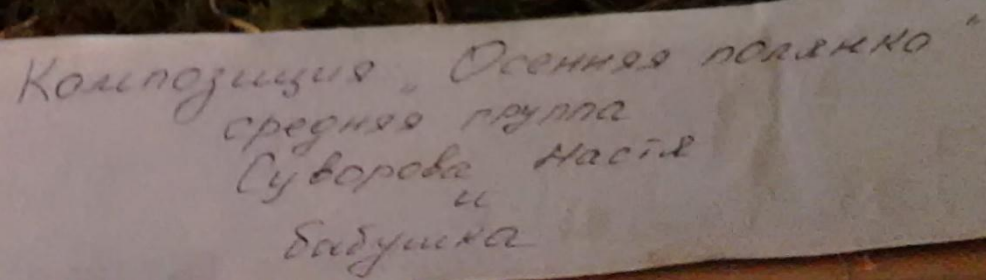 Композиция „Осенняя полянка"
средняя группа
Суворова Настя
и
бабушка